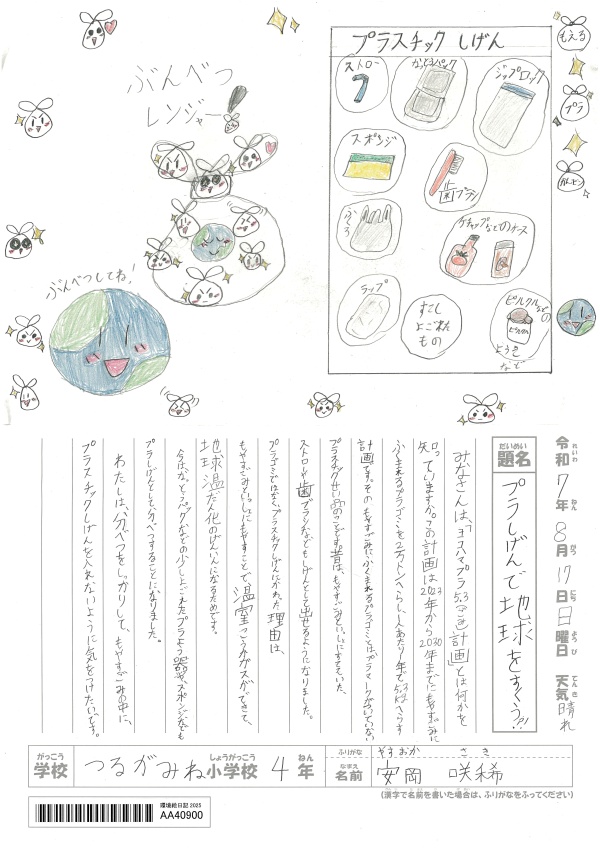 ぶんべつ
レンジャー!
ぶんべつしてね!
プラスチック しげん
ストロー
なっとうパック
ジップロック
スポンジ
歯ブラシ
ふくろ
ケチャップなどのケース
ラップ
すこし
よごれた
もの
ピルクルなどの
ピルクル
ようき
など
もえる
プラ
令和7年8月17日日曜日 天気晴れ
れいわ ねん がつ にち ようび てんき
だいめい
題名 プラしげんで地球をすくう?!
みなさんは、「ヨコハマプラ5.3計画」とは何かを
知っていますか。この計画は2023年から2030年までにもやすごみに
ふくまれるプラゴミを2万トンへらし、一人あたり1年で5.3kgへらす
計画です。そのもやすごみにふくまれるプラゴミとはプラマークがついていない
プラスチックせい品のことです。昔は、もやすごみといっしょにすてていた、
ストローや歯ブラシなどもしげんとして出せるようになりました。
プラゴミではなく、プラスチックしげんにかわった理由は、
もやすごみといっしょにもやすことで、温室こうかガスがでて、
地球温だん化のげんいんになるためです。
今はなっとうパックなどの少しよごれたプラよう器や、スポンジなども
プラしげんとして、分べつすることになりました。
わたしは、分べつをしっかりして、もやすごみの中に、
プラスチックしげんを入れないように気をつけたいです。
がっこう しょうがっこう ねん
学校 つるがみね小学校 4年
ふりがな やすおか さき
なまえ
名前 安岡 咲稀
(漢字で名前を書いた場合は、ふりがなをふってください)
環境絵日記 2025
AA40900